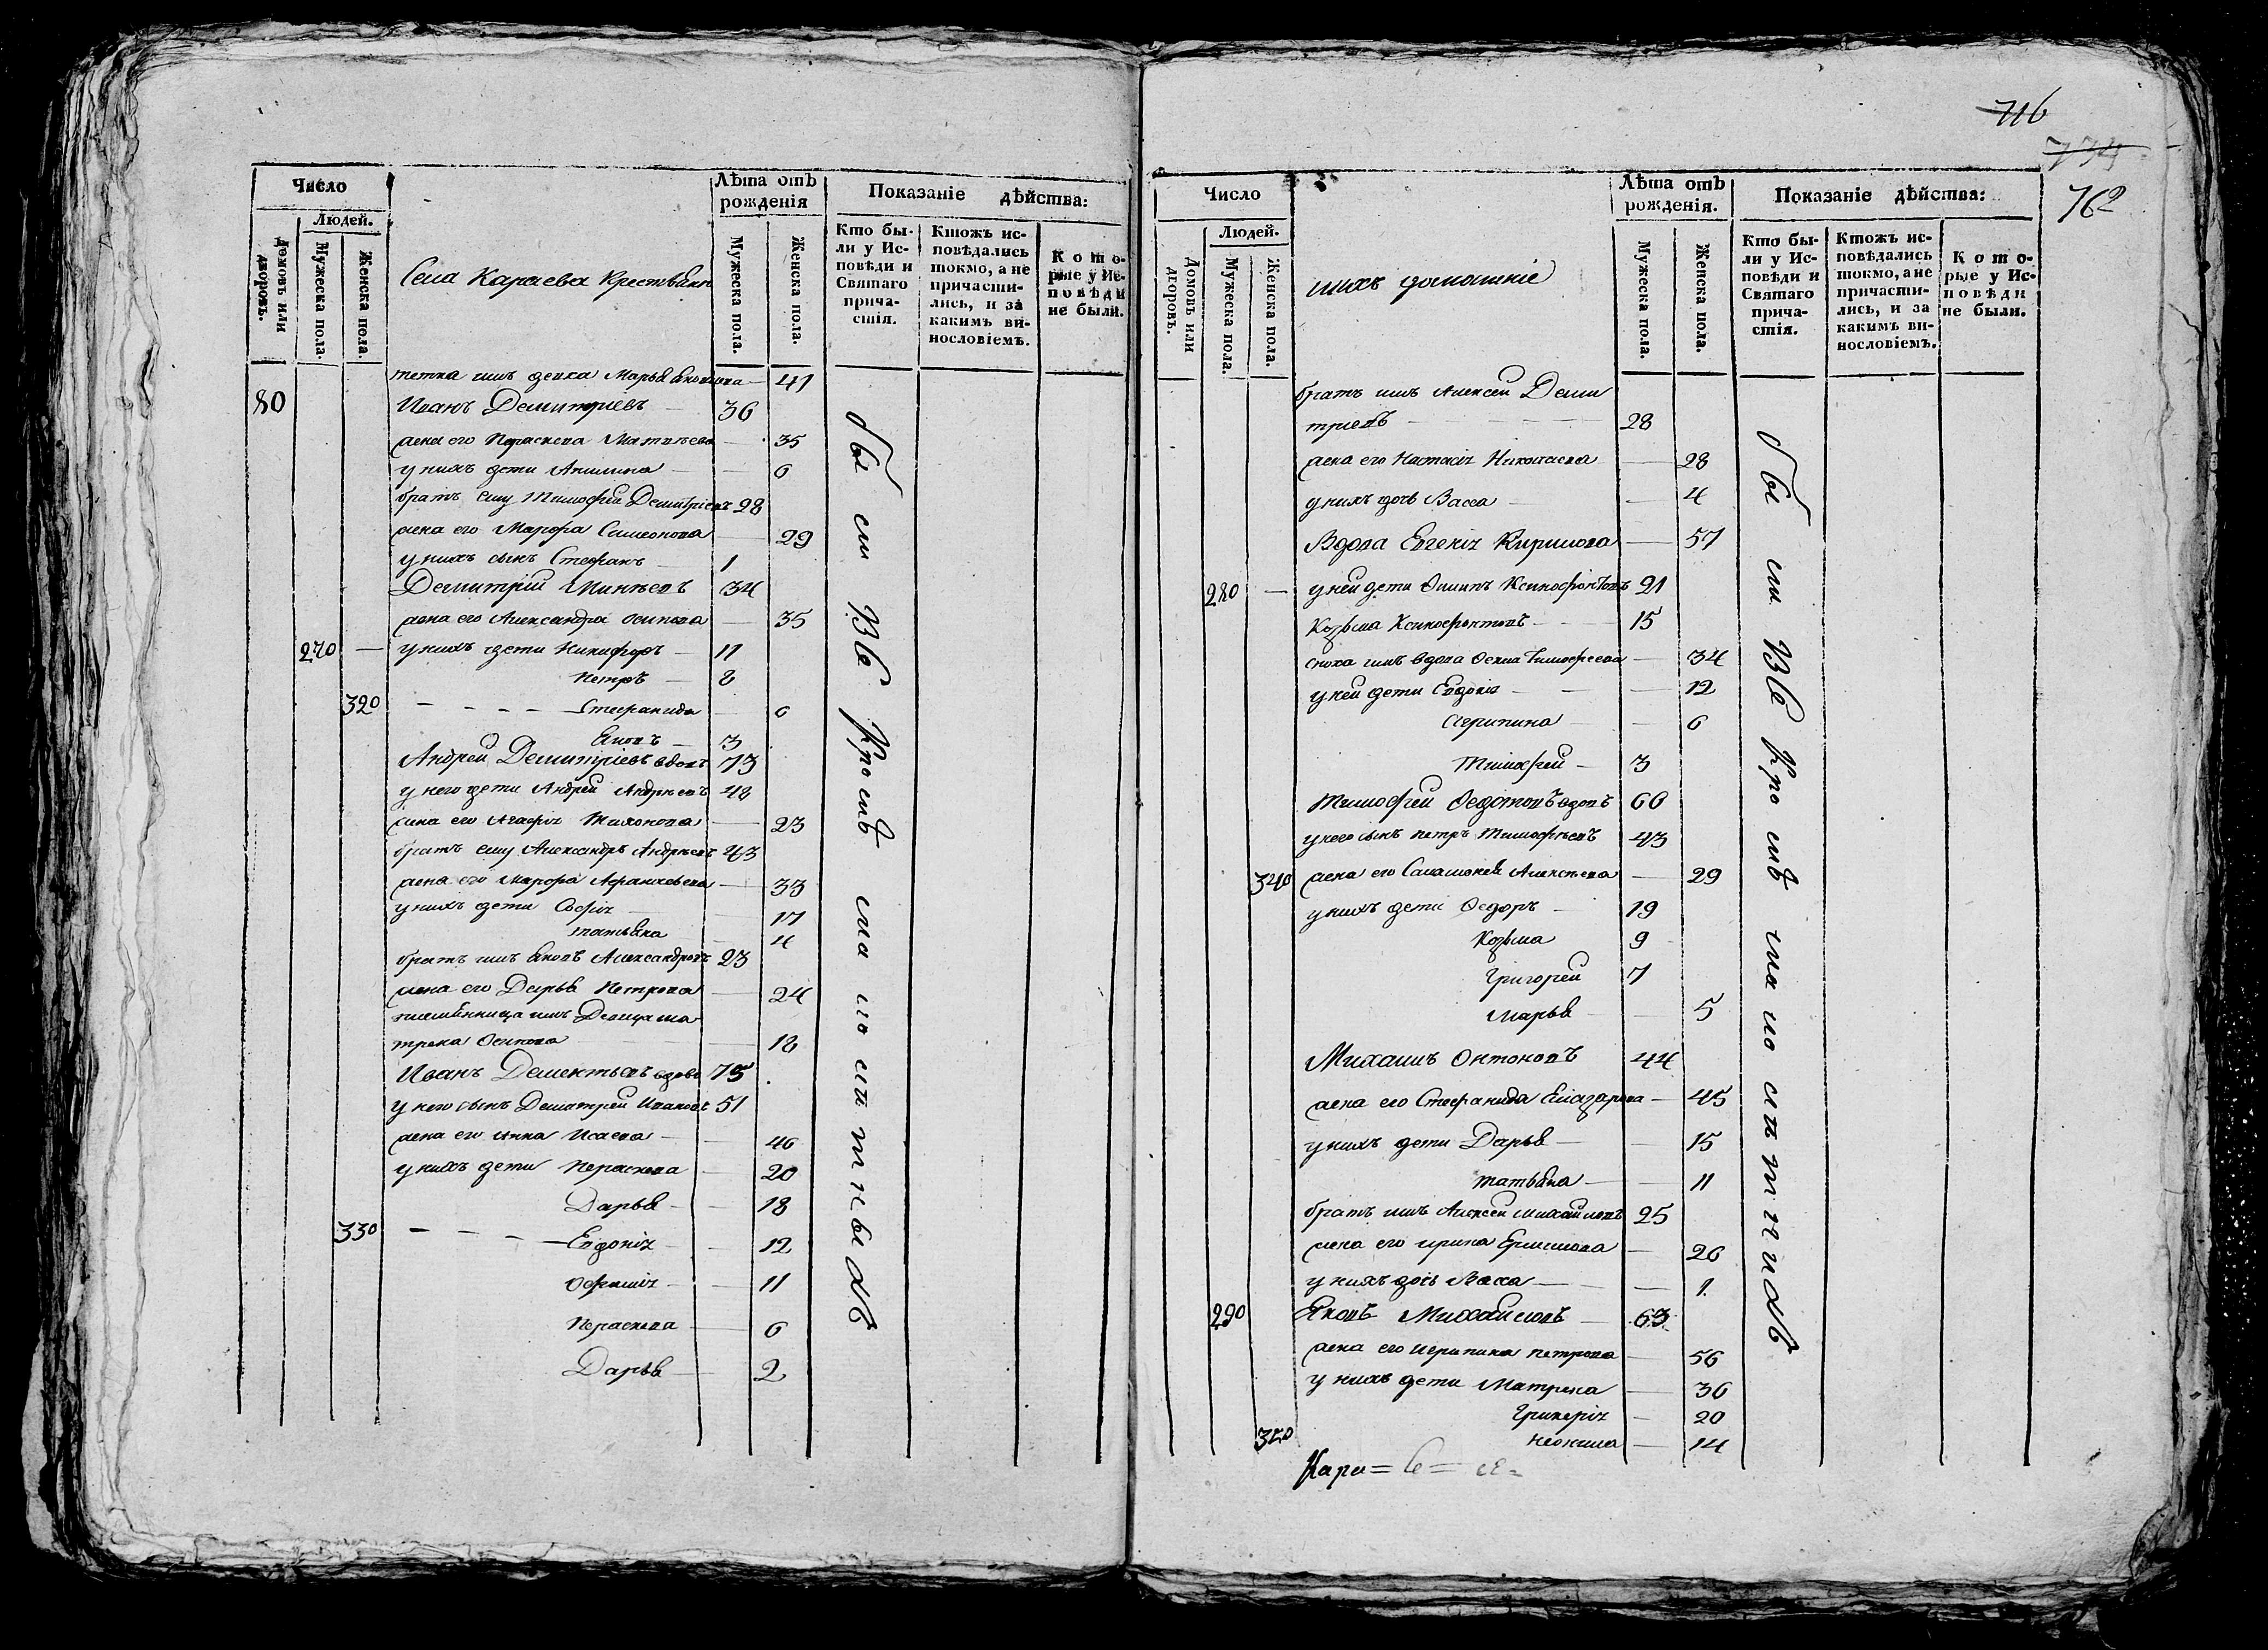 716
774
762
Число
Людей.
Домовъ или дворовъ.
Мужеска пола.
Женска пола.
Села Караева Крестьяне
Лѣта отъ рожденія
Мужеска пола.
Женска пола.
Показаніе дѣйства:
Кто были у Исповѣди и Святаго причастія.
Ктожъ исповѣдались токмо, а не причастились, и за какимъ винословіемъ.
Которые у Исповѣди не были.
тетка имъ девка Марья 41
80 Иванъ Демитріевъ 36
жена его Пораскева Матвѣева 35
у нихъ дети Акилина 6
братъ ему Тимофей Демитріевъ 28
жена его Марфа Симеонова 29
у нихъ сынъ Стефанъ 1
Демитрій Минѣевъ 34
жена его Александра Осипова 35
270 у нихъ дети Никифоръ 11
Петръ 8
320 Стефанида 6
Яковъ 3
Андрей Демитріевъ вдовъ 73
у него дети Андрей Андрѣевъ 48
жена его Агафія Тихонова 23
братъ ему Александръ Андрѣевъ 43
жена его Марфа Афанасьева 33
у нихъ дети Софія 17
татьяна 4
братъ имъ Яковъ Александровъ 23
жена его Дарья Петрова 24
племянница имъ Девица ма
трена Осипова 18
Иванъ Дементьевъ вдовъ 75
у него сынъ Демитрей Ивановъ 51
жена его Анна Исаева 46
у нихъ дети Пераскева 20
Дарья 18
330 Евдокія 12
Офимія 11
Пераскева 6
Дарья 2
бы ли Всѣ Кро мѣ ма ло лѣ т н ы хъ
Число
Людей.
Домовъ или дворовъ.
Мужеска пола.
Женска пола.
ихъ домашніе
Лѣта отъ рожденія.
Мужеска пола.
Женска пола.
Показаніе дѣйства:
Кто были у Исповѣди и Святаго причастія.
Ктожъ исповѣдались токмо, а не причастились, и за какимъ винословіемъ.
Которые у Исповѣди не были.
братъ имъ Алексей Деми
тріевъ 28
жена его Настасія Николаева 28
у нихъ дочь Васса 4
Вдова Евгенія Кирилова 57
280 у ней дети Филипъ Ксинофонтовъ 21
Козьма Ксинофонтовъ 15
сноха имъ вдова Фекла Тимофеева 34
у ней дети Евдокія 12
Агрипина 6
Тимофей 3
Тимофей Федотовъ вдовъ 66
у него сынъ петръ Тимофѣевъ 43
340 жена его Саламонея Алексѣева 29
у нихъ дети Федоръ 19
Козьма 9
Григорей 7
Марья 5
Михаилъ Онтоновъ 44
жена его Стефанида Елазарова 45
у нихъ дети Дарья 15
татьяна 11
братъ имъ Алексей Михайловъ 25
жена его ирина Ермилова 26
у нихъ дочь Васса 1
290 Яковъ Михайловъ 63
жена его Агрипина петрова 56
у нихъ дети Матрена 36
Гликерія 20
Неонила 14
350
бы ли Всѣ Кро мѣ ма ло лѣ т н и хъ
Кара=